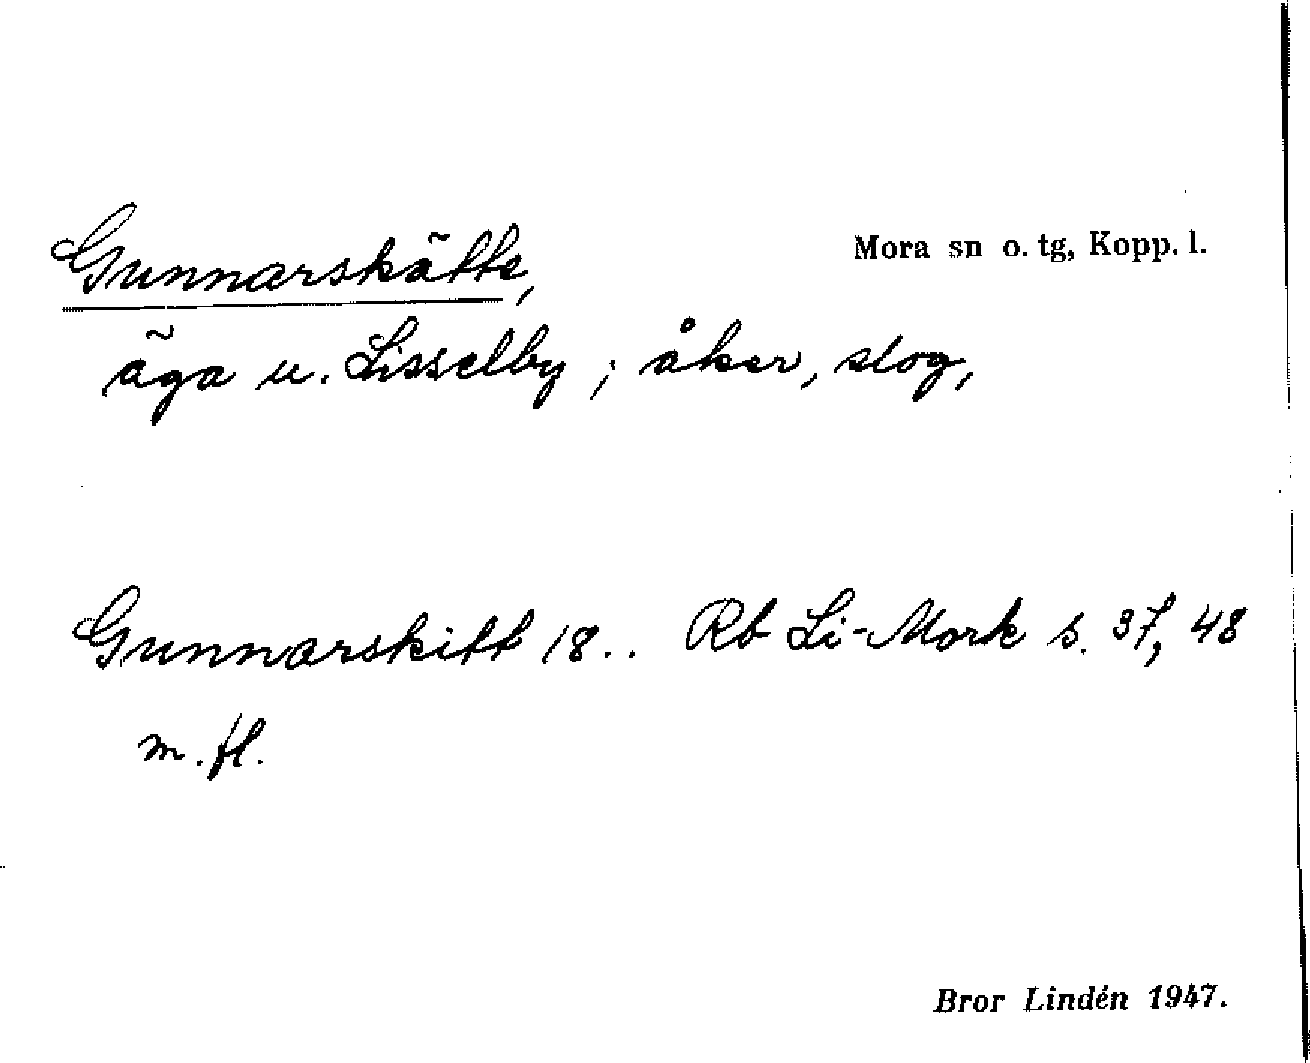 Gunnarskätte,
Mora sn o. tg, Kopp. l.
äga u. Lisselby; åker, slog,
Gunnarskitt 18.. Rb Li-Mork s. 37, 48
m. fl.
Bror Lindén 1947.